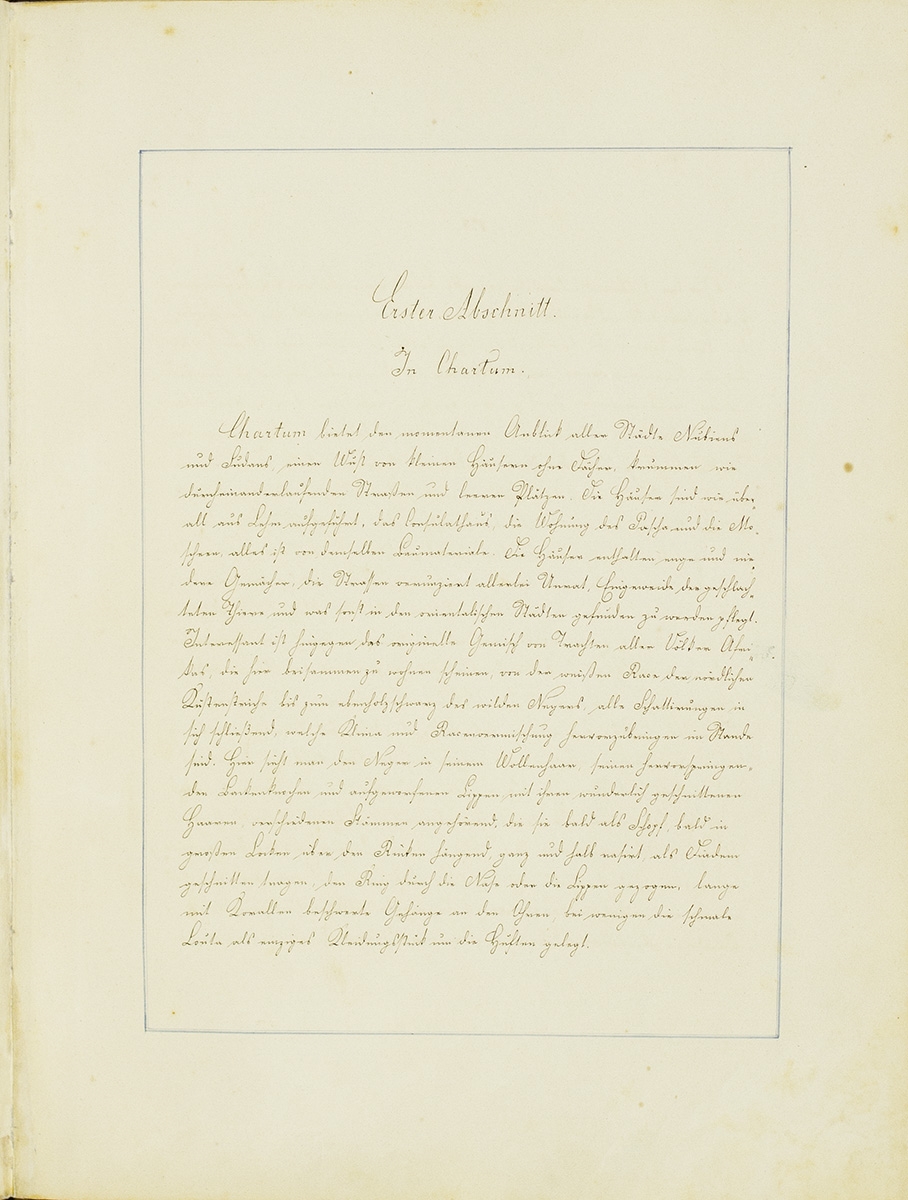 Erster Abschnitt.
In Chartum.
Chartum bietet den momentanen Anblick aller Städte Nubiens
und Sudans, einen Wust von kleinen Häusern ohne Dächer, krummen, wie
durcheinanderlaufenden Straßen und leeren Plätzen. Die Häuser sind wie über-
all aus Lehm aufgeführt, das Consulathaus, die Wohnung des Pascha und die Mo-
scheen, alles ist von demselben Baumateriale. Die Häuser enthalten enge und nie-
dere Gemächer, die Strassen verunziert allerlei Unrat, Eingeweide der geschlach-
teten Thiere und was sonst in den orientalischen Städten gefunden zu werden pflegt.
Interessant ist hingegen das originelle Gemisch von Trachten aller Völker Afri-
kas, die hier beisammen zu wohnen scheinen, von der weißen Race der nördlichen
Küstenstriche bis zum ebenholzschwarz des wilden Negers, alle Schattirungen in
sich schließend, welche Klima und Racenvermischung hervorzubringen im Stande
sind. Hier sieht man den Neger in seinem Wollenhaar, seinen hervorspringen-
den Backenknochen und aufgeworfenen Lippen, mit ihren wunderlich geschnittenen
Haaren, verschiedenen Stämmen angehörend, die sie bald als Schopf, bald in
großen Locken über den Rücken hängend, ganz und halb rasirt, als Diadem
geschnitten tragen, den Ring durch die Nase oder die Lippen gezogen, lange
mit Korallen beschwerte Gehänge an den Ohren, bei wenigen die schmale
als einziges Kleidungsstük um die Hüften gelegt.